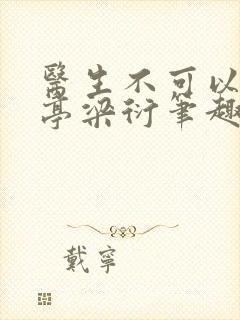 醫生不可以
亭梁衍筆趣
戴寧